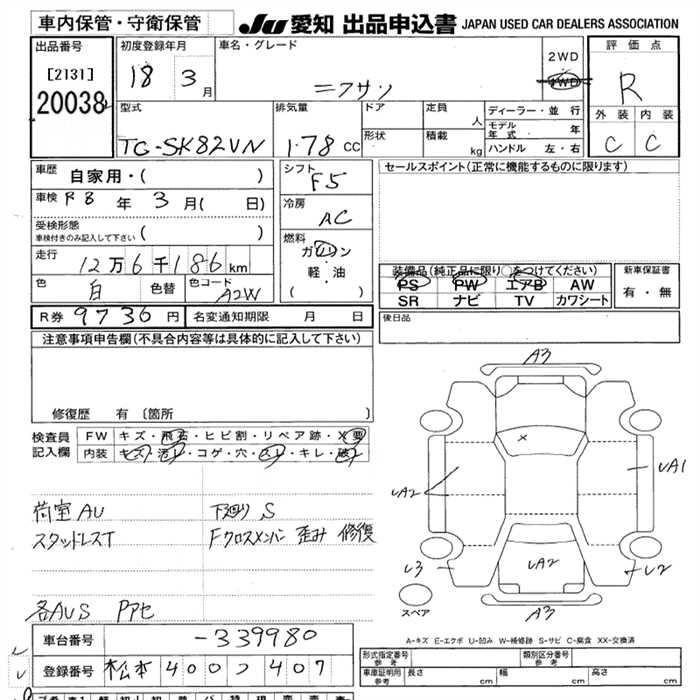 車内保管・守衛保管
JU 愛知 出品申込書 JAPAN USED CAR DEALERS ASSOCIATION
出品番号
[2131]
20038
初度登録年月
18 3月
車名・グレード
ニッサン
2WD
4WD
評価点
R
外装 内装
C C
型式
TC-SK82VN
排気量
1.78 cc
ドア
形状
定員 人
積載 kg
ディーラー・並行
モデル年式 年
ハンドル 左・右
車歴 自家用・( )
車検 R8年 3月( 日)
受検形態
車検付きのみ記入して下さい ( )
走行 12万6千186km
色 白 色替 色コード A2W
R券 9736円 名変通知期限 月 日
シフト F5
冷房 AC
燃料
ガソリン
軽・油
( )
セールスポイント(正常に機能するものに限ります)
装備品(純正品に限り○をつけてください)
PS PW エアB AW
SR ナビ TV カワシート
新車保証書
有・無
後日品
注意事項申告欄(不具合内容等は具体的に記入して下さい)
修復歴 有 〔箇所 〕
検査員記入欄
FW キズ・飛石・ヒビ割・リペア跡・X要
内装 キズ・汚レ・コゲ・穴・スレ・キレ・破レ
荷室AU 下廻り S
スタッドレスT Fクロスメンバー 歪み 修復
各AUS PPセ
A3
X
UA2
UA1
U3
UA2
U2
A3
スペア
A-キズ E-エクボ U-凹み W-補修跡 S-サビ C-腐食 XX-交換済
車台番号 -339980
登録番号 松本 400 つ 407
形式指定番号
参考
類別区分番号
参考
車庫証明用
参考
長さ cm 幅 cm 高さ cm